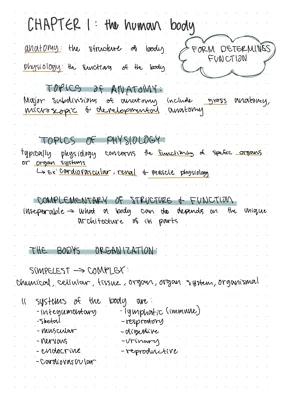 CHAPTER 1: the human body
anatomy: the structure of body
physiology: the functions of the body
FORM DETERMINES
FUNCTION
TOPICS of ANATOMY:
Major subdivisions of anatomy include gross anatomy,
microscopic & developmental anatomy
TOPICS OF PHYSIOLOGY
typically physiology concerns the functioning of specific organs
or organ systems
↳ ex: cardiovascular, renal & muscle physiology
COMPLEMENTARY OF STRUCTURE & FUNCTION
inseperable → what a body can do depends on the unique
architecture of its parts
THE BODYS ORGANIZATION:
SIMPLEST → COMPLEX:
chemical, cellular, tissue, organ, organ system, organismal
11 systems of the body are:
-integumentary
-lymphatic (immune)
-skeletal
-respiratory
-muscular
-digestive
-nervous
-urinary
-endocrine
-reproductive
-cardiovascular